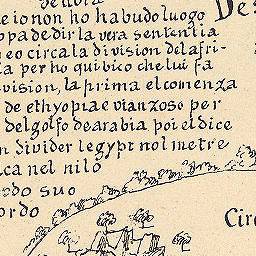 e io non ho habudo luogo
pa de dir la vera sententia
eo circa la division del afri-
ca per ho qui bico che lui fa
vision, la prima el comenza
de ethyopia e vian zoso per
del golfo de arabia poi el dice
n divider legypt nol metre
ca nel nilo
ordo suo
ordo
Des
Circ